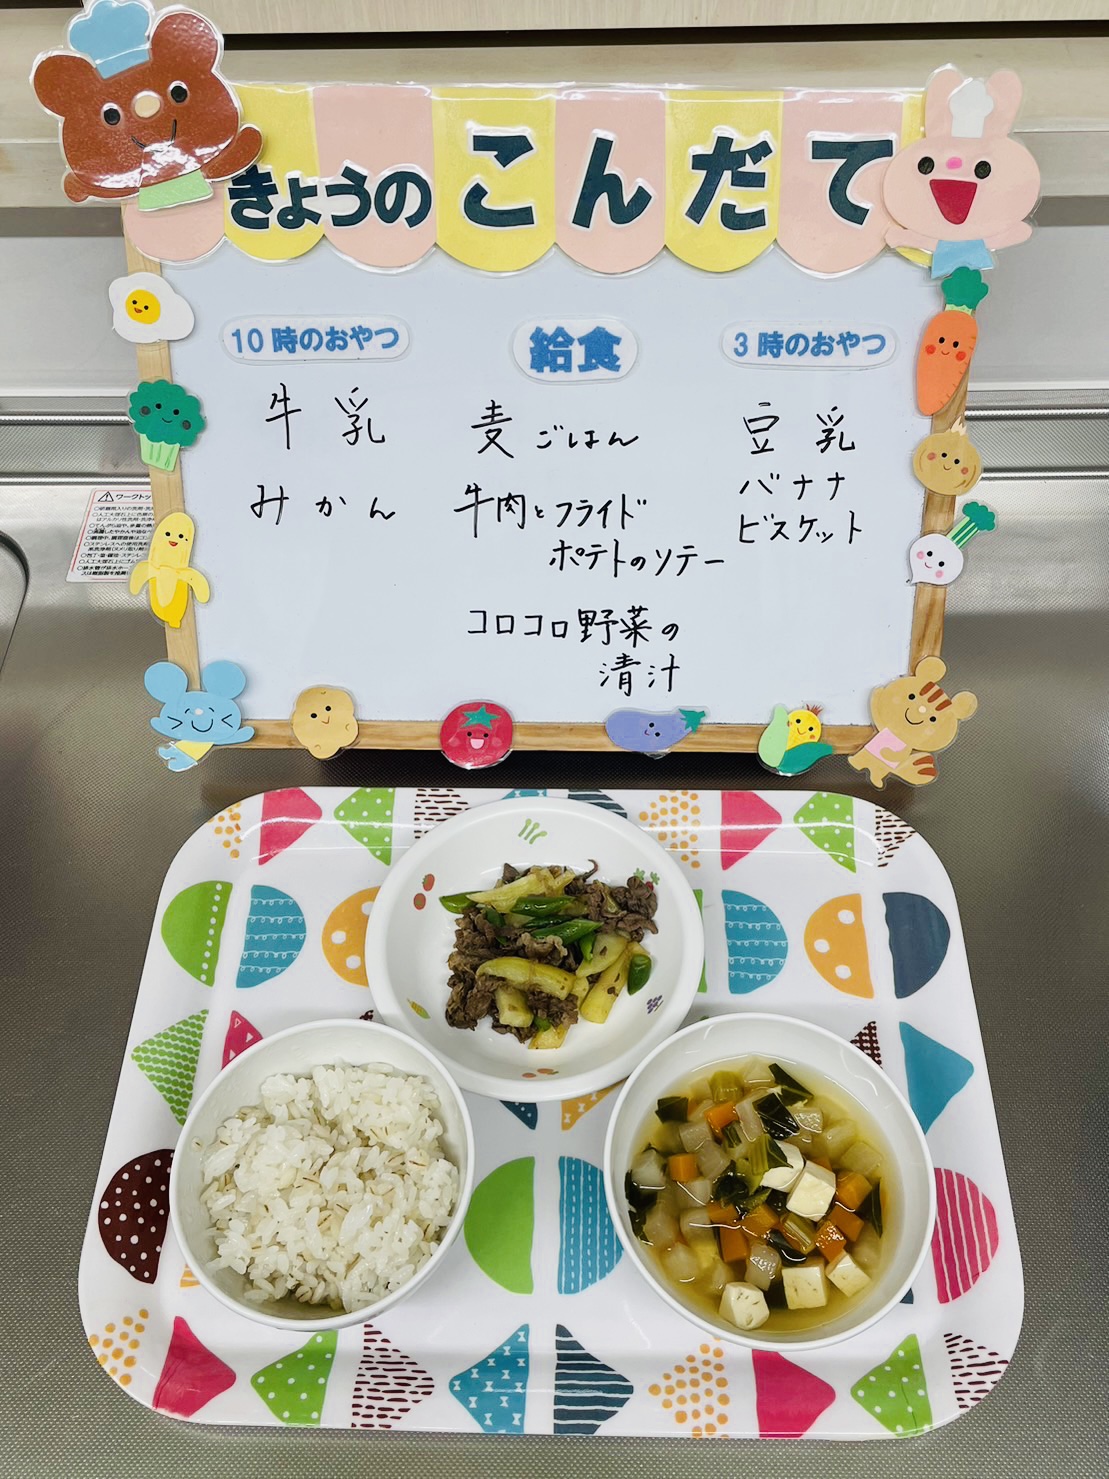 きょうの こんだて
10時のおやつ
牛乳
みかん
給食
麦ごはん
牛肉とフライド
ポテトのソテー
コロコロ野菜の
清汁
3時のおやつ
豆乳
バナナ
ビスケット
ワークトッ